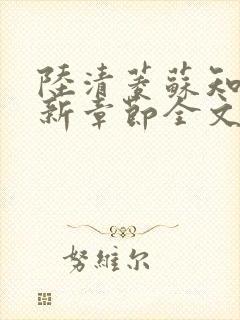 陸清菱蘇知
新章節全文
努維尔